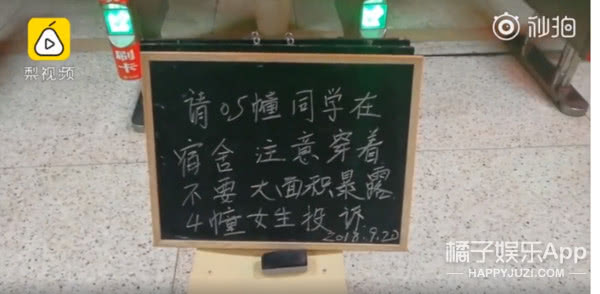 梨视频
秒拍
刷卡
请05幢同学在
宿舍 注意穿着
不要 大面积暴露
4幢女生投诉
2018.9.20
橘子娱乐App
HAPPYJUZI.COM